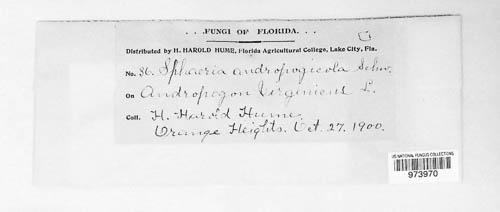 . . .FUNGI OF FLORIDA. . .
Distributed by H. HAROLD HUME, Florida Agricultural College, Lake City, Fla.
No. 86. Sphaeria andropogicola Schw.
On Andropogon Virginicus L.
Coll. H. Harold Hume.
Orange Heights. Oct. 27. 1900.
US NATIONAL FUNGUS COLLECTIONS
973970